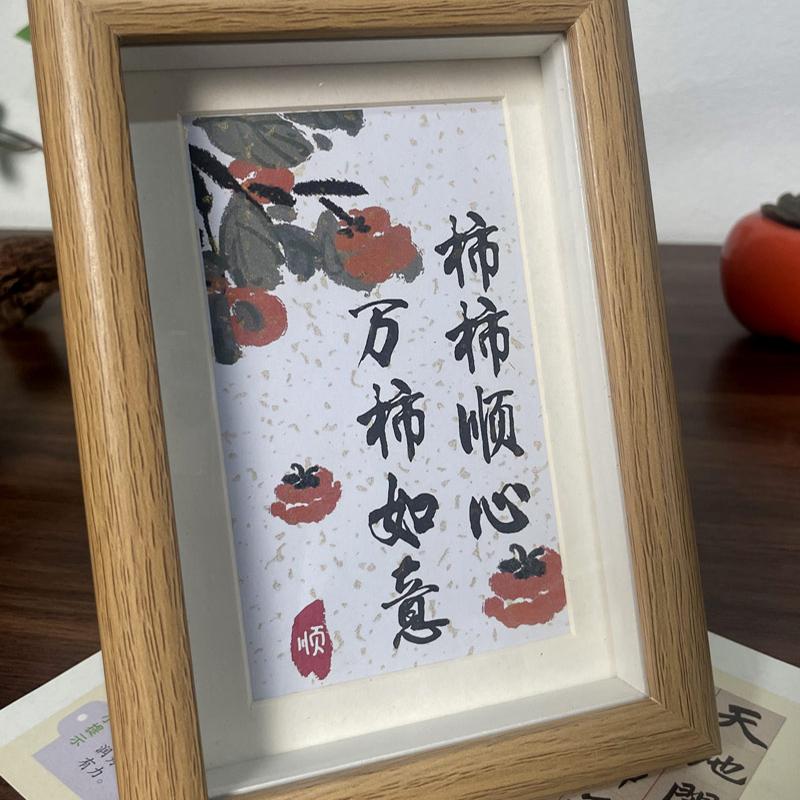 柿柿顺心
万柿如意
顺
小提示
有力。
天地